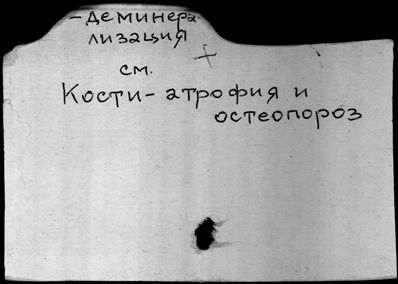 - Деминера-
лизация
см.
Кости - атрофия и
остеопороз